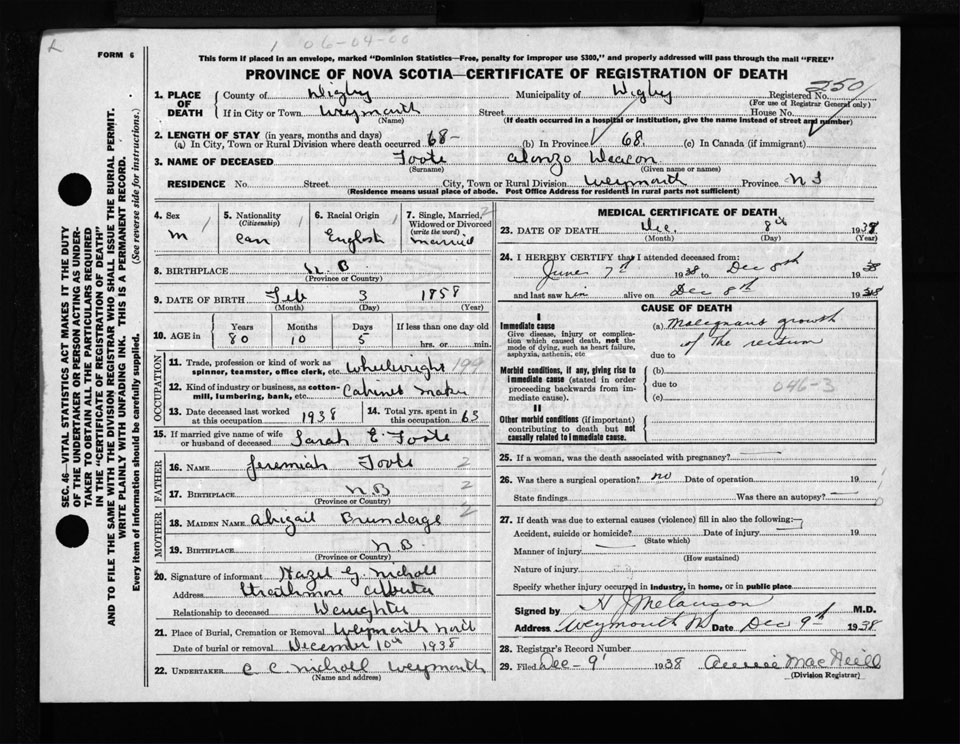 L
1 06-04-00
FORM 6
This form if placed in an envelope, marked "Dominion Statistics—Free, penalty for improper use $300," and properly addressed will pass through the mail "FREE"
PROVINCE OF NOVA SCOTIA—CERTIFICATE OF REGISTRATION OF DEATH
250
1. PLACE OF DEATH County of Digby Municipality of Digby Registered No.
(For use of Registrar General only)
If in City or Town Weymouth Street House No.
(Name) (If death occurred in a hospital or institution, give the name instead of street and number)
2. LENGTH OF STAY (in years, months and days)
(a) In City, Town or Rural Division where death occurred 68 - (b) In Province 68. (c) In Canada (if immigrant)
3. NAME OF DECEASED Foote Alonzo Deacon
(Surname) (Given name or names)
RESIDENCE No. Street City, Town or Rural Division Weymouth Province N S
(Residence means usual place of abode. Post Office Address for residents in rural parts not sufficient)
4. Sex 1
M
5. Nationality 1
(Citizenship)
Can
6. Racial Origin 1
English
7. Single, Married, Widowed or Divorced 2
(write the word)
Married
8. BIRTHPLACE N. B
(Province or Country)
9. DATE OF BIRTH Feb 3 1858
(Month) (Day) (Year)
10. AGE in Years Months Days If less than one day old
80 10 5 hrs. or min.
OCCUPATION
11. Trade, profession or kind of work as spinner, teamster, office clerk, etc. Wheelwright 199
12. Kind of industry or business, as cotton-mill, lumbering, bank, etc. Cabinet Maker
13. Date deceased last worked at this occupation 1938
14. Total yrs. spent in this occupation 65
15. If married give name of wife or husband of deceased Sarah E. Foote
FATHER
16. NAME Jeremiah Foote 2
17. BIRTHPLACE N B 2
(Province or Country)
MOTHER
18. MAIDEN NAME Abigail Brundage 2
19. BIRTHPLACE N B.
(Province or Country)
20. Signature of informant Hazel G. Nicholl
Address Strathmore Alberta
Relationship to deceased Daughter
21. Place of Burial, Cremation or Removal Weymouth North
Date of burial or removal December 10th 1938
22. UNDERTAKER C C. Nicholl Weymouth
(Name and address)
MEDICAL CERTIFICATE OF DEATH
23. DATE OF DEATH Dec. 8th 1938
(Month) (Day) (Year)
24. I HEREBY CERTIFY that I attended deceased from:
June 7th 1938 to Dec 8th 1938
and last saw him alive on Dec 8th 1938
CAUSE OF DEATH
I
Immediate cause
Give disease, injury or complication which caused death, not the mode of dying, such as heart failure, asphyxia, asthenia, etc
(a) Malignant growth
of the rectum
due to
Morbid conditions, if any, giving rise to immediate cause (stated in order proceeding backwards from immediate cause).
(b)
due to 046-3
(c)
II
Other morbid conditions (if important) contributing to death but not causally related to immediate cause.
25. If a woman, was the death associated with pregnancy?
26. Was there a surgical operation? no Date of operation 19
State findings Was there an autopsy?
27. If death was due to external causes (violence) fill in also the following:
Accident, suicide or homicide? Date of injury 19
(State which)
Manner of injury
(How sustained)
Nature of injury
Specify whether injury occurred in industry, in home, or in public place
Signed by H J Melanson M.D.
Address Weymouth NS Date Dec 9th 1938
28. Registrar's Record Number
29. Filed Dec - 9 1938 Annie MacNeill
(Division Registrar)
SEC. 46—VITAL STATISTICS ACT MAKES IT THE DUTY
OF THE UNDERTAKER OR PERSON ACTING AS UNDER-
TAKER TO OBTAIN ALL THE PARTICULARS REQUIRED
IN THE "CERTIFICATE OF REGISTRATION OF DEATH"
AND TO FILE THE SAME WITH THE DIVISION REGISTRAR WHO SHALL ISSUE THE BURIAL PERMIT.
WRITE PLAINLY WITH UNFADING INK. THIS IS A PERMANENT RECORD.
Every item of information should be carefully supplied. (See reverse side for instructions.)